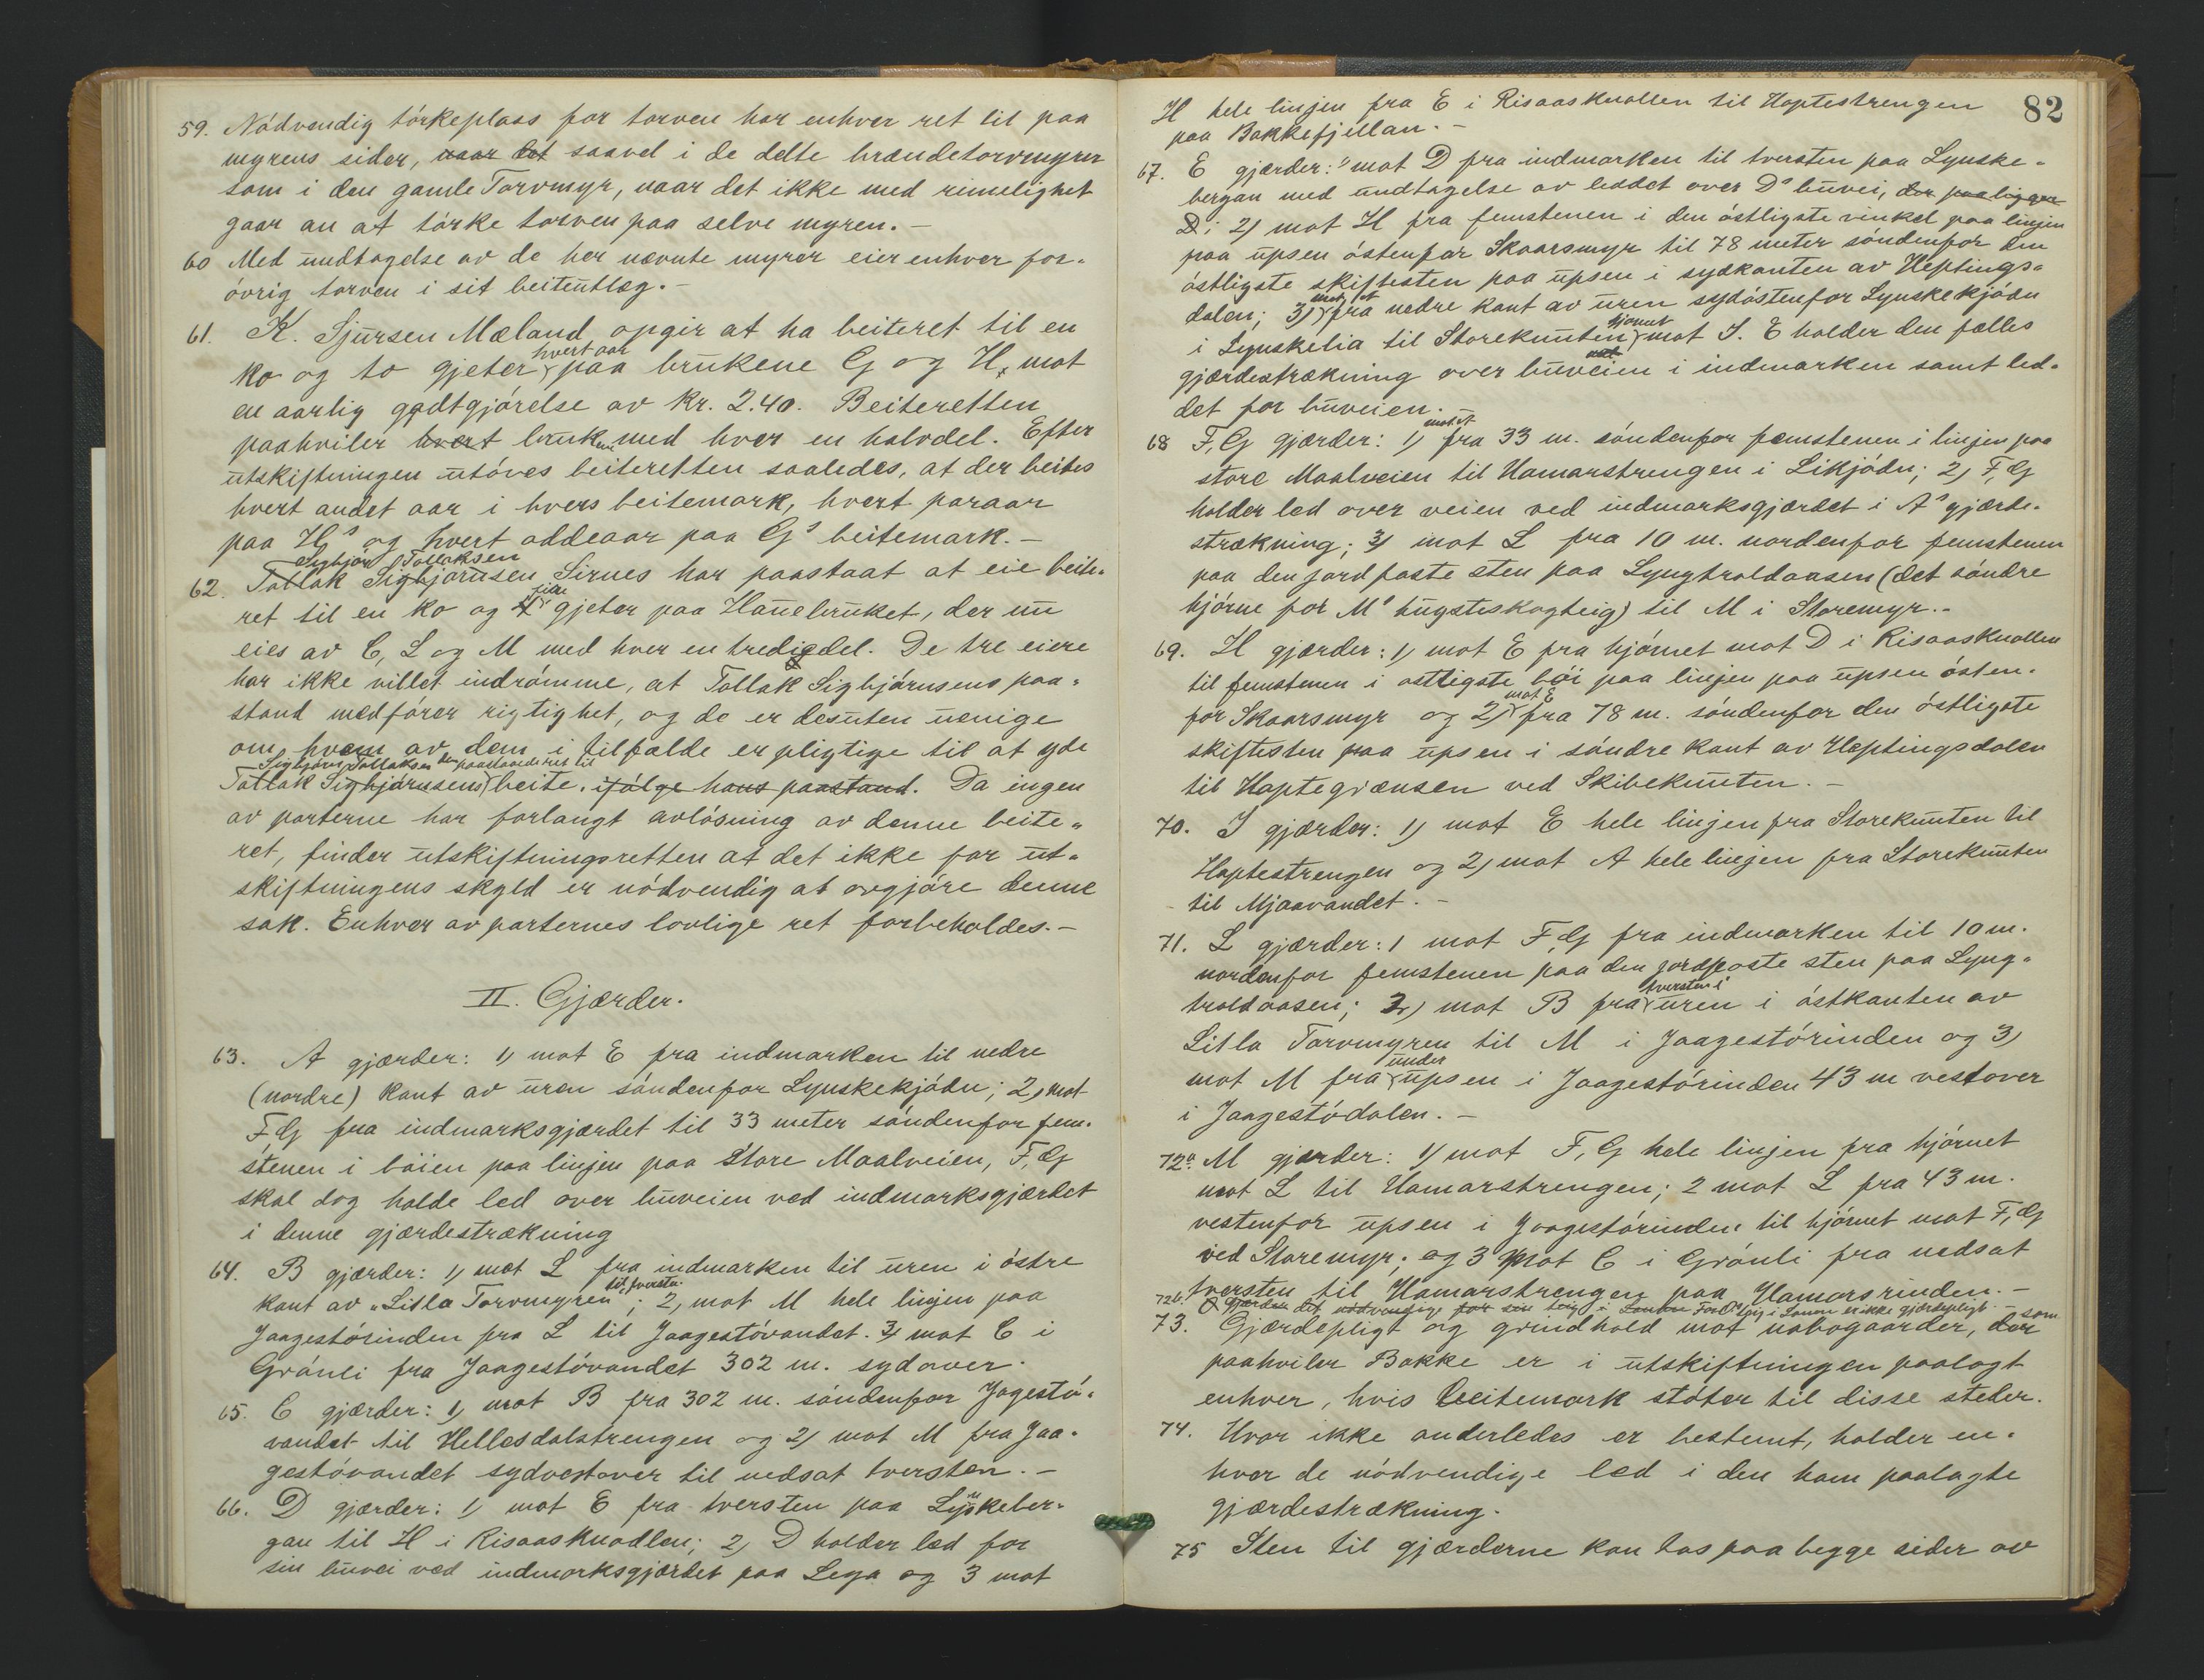 59. Nödvendig törkeplass for torven har enhver ret til paa
myrens sider, naar det saavel i de delte brændetorvmyrer
som i den gamle Torvmyr, naar det ikke med rimelighet
gaar an at törke torven paa selve myren.-
60 Med undtagelse av de her nævnte myrer eier enhver for-
övrig torven i sit beiteutlæg.-
61. K. Sjursen Mæland opgir at ha beiteret til en
hvert aar
ko og to gjeter paa brukene G og H, mot
en aarlig godtgjörelse av kr. 2.40. Beiteretten
paahviler hvert bruk med hver en halvdel. Efter
utskiftningen utöves beiteretten saaledes, at der beites
hvert andet aar i hvers beitemark, hvert paraar
paa Hs og hvert oddeaar paa Gs beitemark.-
Sigbjörn Tollaksen
62. Tollak Sigbjörnsen Sirnes har paastaat at eie beite-
fire
ret til en ko og 4 gjeter paa Hauebruket, der nu
eies av C, L og M med hver en trediedel. De tre eiere
har ikke villet indrömme, at Tollak Sigbjörnsens paa-
stand medförer rigtighet, og de er desuten uenige
om hvem av dem i tilfælde er pligtige til at yde
Sigbjörn Tollaksen den paastaaede ret til
Tollak Sigbjörnsens beite. ifölge hans paastand. Da ingen
av parterne har forlangt avlösning av denne beite-
ret, finder utskiftningsretten at det ikke for ut-
skiftningens skyld er nödvendig at avgjöre denne
sak. Enhver av parternes lovlige ret forbeholdes.-
II. Gjærder.
63. A gjærder: 1) mot E fra indmarken til nedre
(nordre) kant av uren söndenfor Lynskekjödn; 2, mot
F,G fra indmarksgjærdet til 33 meter söndenfor fem-
stenen i böien paa linjen paa Store Maalveien, F,G
skal dog holde led over buveien ved indmarksgjærdet
i denne gjærdestrækning
64. B gjærder: 1) mot L fra indmarken til uren i östre
til tversten
kant av "Litla Torvmyren"; 2, mot M hele linjen paa
Jaagestörinden fra L til Jaagestövandet. 3) mot C i
Grönli fra Jaagestövandet 302 m. sydover.
65. C gjærder: 1) mot B fra 302 m. söndenfor Jagestö-
vandet til Hellesdalstrengen og 2) mot M fra Jaa-
gestövandet sydvestover til nedsat tversten.-
66. D gjærder: 1) mot E fra tversten paa Lynskeber-
gan til H i Risaasknodlen; 2) D holder led for
sin buvei ved indmarksgjærdet paa Lega og 3 mot
82
H hele linjen fra E i Risaasknollen til Haptestrengen
paa Bakkefjellan.-
67. E gjærder: 1) mot D fra indmarken til tversten paa Lynske-
bergan med undtagelse av leddet over Ds buvei, der paaligger
D; 2) mot H fra femstenen i den östligste vinkel paa linjen
paa upsen östenfor Skaarsmyr til 78 meter söndenfor den
östligste skiftesten paa upsen i sydkanten av Heptings-
mot A
dalen; 3) fra nedre kant av uren sydöstenfor Lynskekjödn
hjörnet
i Lynskelia til Storekunten mot I. E holder den fælles
gjærdestrækning over buveien i indmarken samt led-
det for buveien.
mot A
68 F,G gjærder: 1) fra 33 m. söndenfor femstenen i linjen paa
store Maalveien til Hamarstrengen i Likjödn; 2) F,G
holder led over veien ved indmarksgjærdet i As gjærde-
strækning; 3) mot L fra 10 m. nordenfor femstenen
paa den jordfaste sten paa Lyngtroldaasen (det söndre
hjörne for Ms hugsteskogteig) til M i Storemyr.-
69. H gjærder: 1) mot E fra hjörnet mot D i Risaasknollen
til femstenen i östligste böi paa linjen paa upsen östen-
mot E
for Skaarsmyr og 2) fra 78 m. söndenfor den östligste
skiftesten paa upsen i söndre kant av Heptingsdalen
til Haptegrænsen ved Skibekunten.-
70. I gjærder: 1) mot E hele linjen fra Storekunten til
Haptestrengen og 2) mot A hele linjen fra Storekunten
til Mjaavandet.-
71. L gjærder: 1 mot F,G fra indmarken til 10 m.
nordenfor femstenen paa den jordfaste sten paa Lyng-
tversten i
troldaasen; 2) mot B fra uren i östkanten av
Litla Torvmyren til M i Jaagestörinden og 3)
under
mot M fra upsen i Jaagestörinden 43 m vestover
i Jaagestödalen.-
72a. M gjærder: 1) mot F, G hele linjen fra hjörnet
mot L til Hamarstrengen; 2 mot L fra 43 m.
vestenfor upsen i Jaagestörinden til hjörnet mot F,G
ved Storemyr; og 3 mot C i Grönli fra nedsat
tversten til Hamarstrengen paa Hamarsrinden.-
72b. O gjærder det nödvendige for sin teig i Lonene For Os teig i Lonene er ikke gjærdepligt.-
som
73. Gjærdepligt og grindhold mot nabogaarder, der
paahviler Bakke er i utskiftningen paalagt
enhver, hvis beitemark stöter til disse steder.
74. Hvor ikke anderledes er bestemt, holder en-
hver de nödvendige led i den ham paalagte
gjærdestrækning.
75 Sten til gjærderne kan tas paa begge sider av